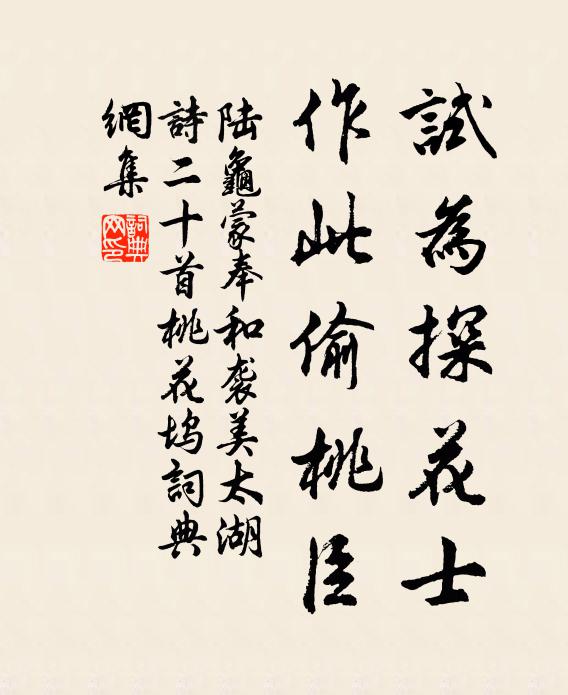 試為探花士
作此偷桃臣
陸龜蒙奉和襲美太湖
詩二十首桃花塢詞典
網集
詞典網印